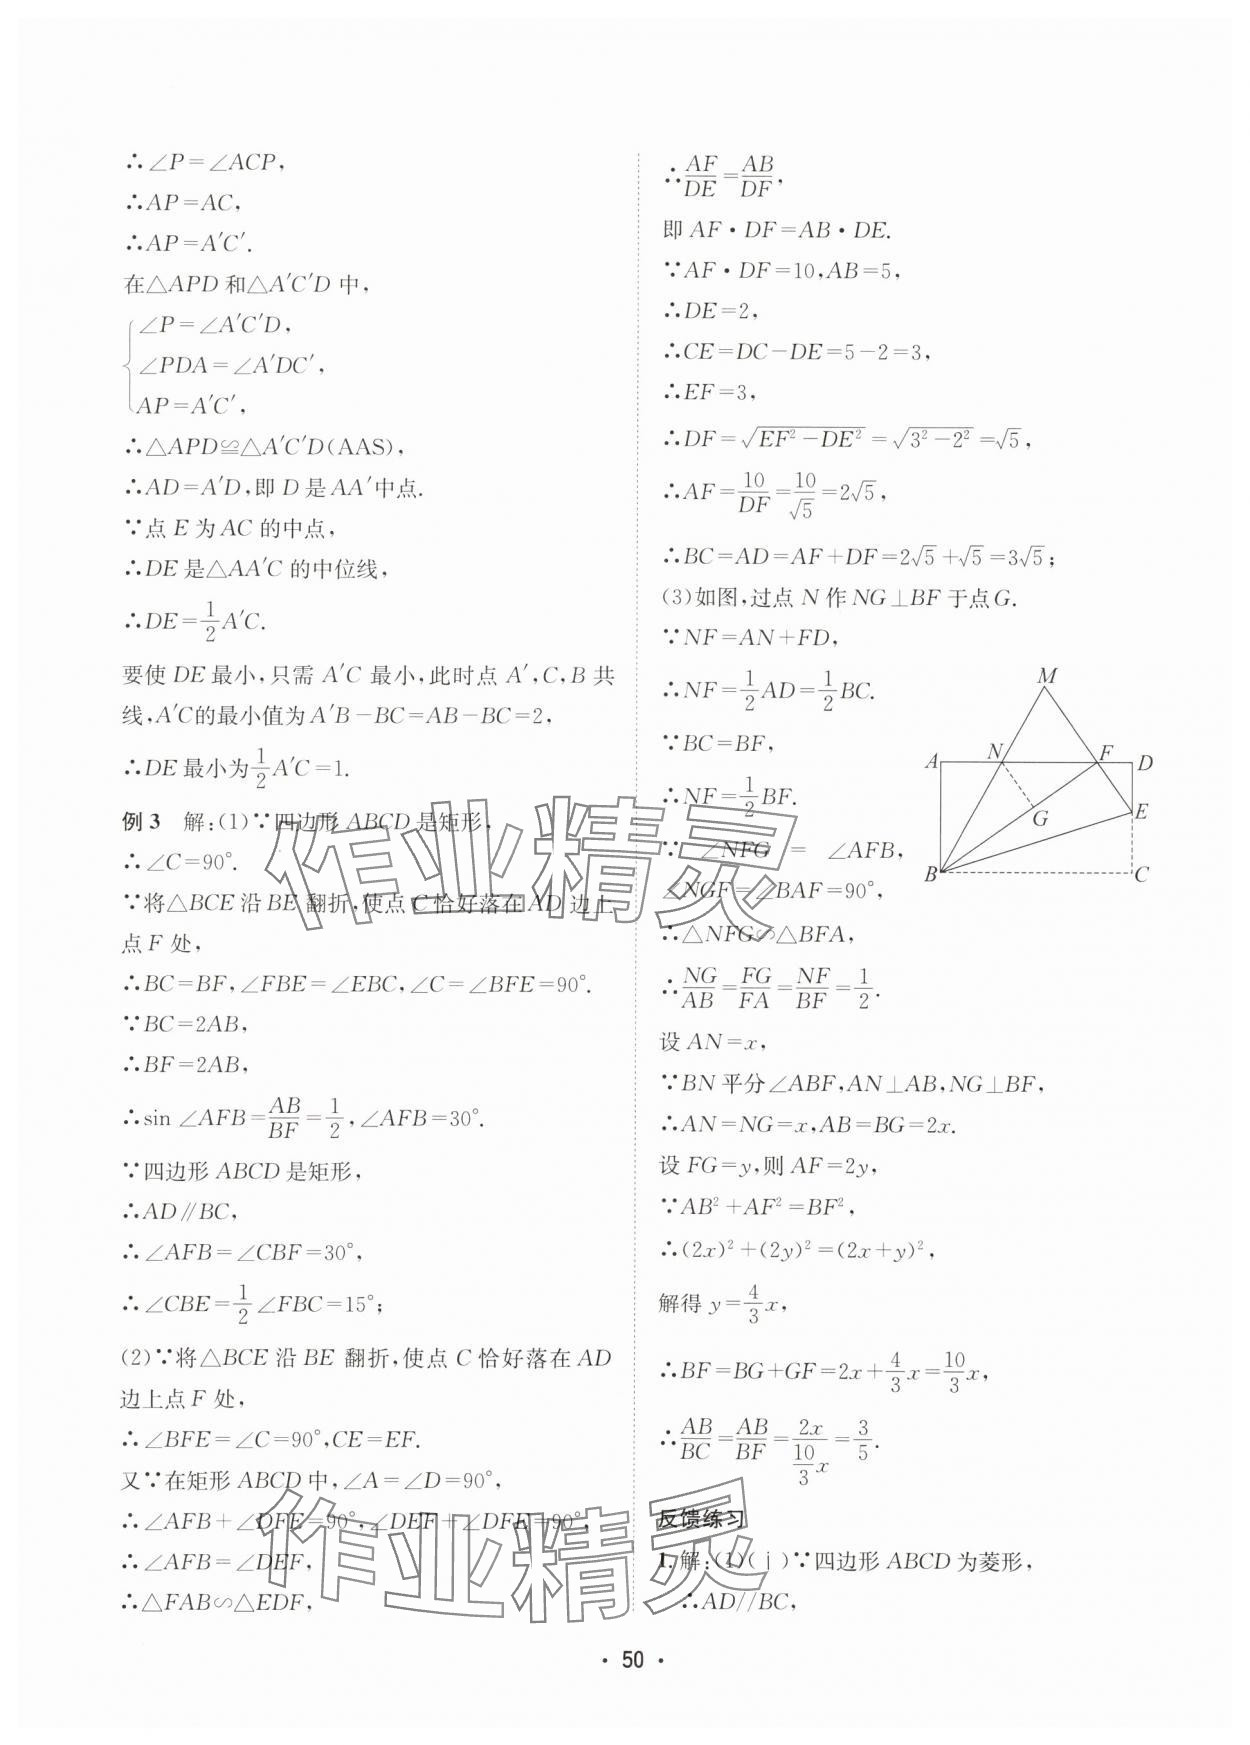 ∴∠P=∠ACP,
∴AP=AC,
∴AP=A′C′.
在△APD和△A′C′D中,
∠P=∠A′C′D,
∠PDA=∠A′DC′,
AP=A′C′,
∴△APD≌△A′C′D(AAS),
∴AD=A′D,即D是AA′中点.
∵点E为AC的中点,
∴DE是△AA′C的中位线,
∴DE=1/2A′C.
要使DE最小,只需A′C最小,此时点A′,C,B共
线,A′C的最小值为A′B-BC=AB-BC=2,
∴DE最小为1/2A′C=1.
例3 解:(1)∵四边形ABCD是矩形,
∴∠C=90°.
∵将△BCE沿BE翻折,使点C恰好落在AD边上
点F处,
∴BC=BF,∠FBE=∠EBC,∠C=∠BFE=90°.
∵BC=2AB,
∴BF=2AB,
∴sin∠AFB=AB/BF=1/2,∠AFB=30°.
∵四边形ABCD是矩形,
∴AD∥BC,
∴∠AFB=∠CBF=30°,
∴∠CBE=1/2∠FBC=15°;
(2)∵将△BCE沿BE翻折,使点C恰好落在AD
边上点F处,
∴∠BFE=∠C=90°,CE=EF.
又∵在矩形ABCD中,∠A=∠D=90°,
∴∠AFB+∠DFE=90°,∠DEF+∠DFE=90°,
∴∠AFB=∠DEF,
∴△FAB∽△EDF,
∴AF/DE=AB/DF,
即AF·DF=AB·DE.
∵AF·DF=10,AB=5,
∴DE=2,
∴CE=DC-DE=5-2=3,
∴EF=3,
∴DF=√(EF²-DE²)=√(3²-2²)=√5,
∴AF=10/DF=10/√5=2√5,
∴BC=AD=AF+DF=2√5+√5=3√5;
(3)如图,过点N作NG⊥BF于点G.
∵NF=AN+FD,
∴NF=1/2AD=1/2BC.
∵BC=BF,
∴NF=1/2BF.
∵ ∠NFG = ∠AFB,
∠NGF=∠BAF=90°,
∴△NFG∽△BFA,
∴NG/AB=FG/FA=NF/BF=1/2.
设AN=x,
∵BN平分∠ABF,AN⊥AB,NG⊥BF,
∴AN=NG=x,AB=BG=2x.
设FG=y,则AF=2y,
∵AB²+AF²=BF²,
∴(2x)²+(2y)²=(2x+y)²,
解得y=4/3x,
∴BF=BG+GF=2x+4/3x=10/3x,
∴AB/BC=AB/BF=2x/(10/3x)=3/5.
反馈练习
1.解:(1)(ⅰ)∵四边形ABCD为菱形,
∴AD//BC,
M
A
N
F
D
G
E
B
C
作业精灵
作业精灵
• 50 •